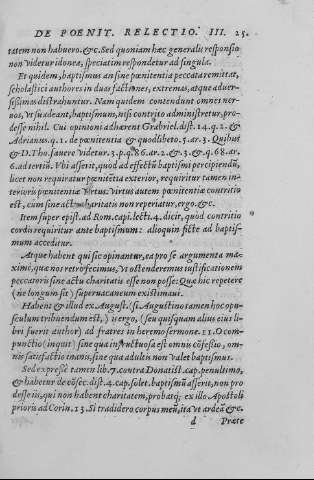 DE POENIT. RELECTIO. III. 25.
tatem non habuero. &c. Sed quoniam hæc generalis responsio
non videtur idonea, speciatim respondetur ad singula.
Et quidem, baptismus an sine pœnitentia peccata remittat,
scholastici authores in duas factiones, extremas, atque aduer-
sissimas distrahuntur. Nam quidem contendunt omnes ner-
uos, vt suadeant, baptismum, nisi contrito administretur, pro-
desse nihil. Cui opinioni adhærent Gabriel. dist. 14. q. 2. &
Adrianus. q. 1. de pœnitentia & quodlibeto. 5. ar. 3. Quibus
& D. Tho. fauere videtur. 3. p. q. 86. ar. 2. & 3. & q. 68. ar.
6. ad tertiũ. Vbi asserit, quod ad effectũ baptismi percipiendũ,
licet non requiratur pœnitẽtia exterior, requiritur tamen in-
terioris pœnitẽtiæ virtus: virtus autem pœnitentiæ contritio
est, cùm sine actu charitatis non reperiatur, ergo. &c.
Item super epist. ad Rom. capi. lecti. 4. dicit, quòd contritio
cordis requiritur ante baptismum: alioquin fictè ad baptis-
mum acceditur.
Atque habent qui sic opinantur, ea pro se argumenta ma-
ximè, quæ nos retrò fecimus, vt ostenderemus iustificationem
peccatoris sine actu charitatis esse non posse: Quæ hîc repetere
(ne longum sit) superuacaneum existimaui.
Habent & illud ex August. (si Augustino tamen hoc opu-
sculum tribuendum est,) is ergo, (seu quisquam alius eius li-
bri fuerit author) ad fratres in heremo sermone. 11. O com-
punctio (inquit) sine qua infructuosa est omnis cõfessio, om-
nis satisfactio inanis, sine qua adultis non valet baptismus.
Sed expressè tamen lib. 7. contra Donatist. cap. penultimo,
& habetur de cõsec. dist. 4. cap. solet. baptismũ asserit, non pro
desse iis, qui non habent charitatem, probatq; ex illo Apostoli
prioris ad Corin. 13. Si tradidero corpus meũ, ita vt ardeã &c.
d Præte